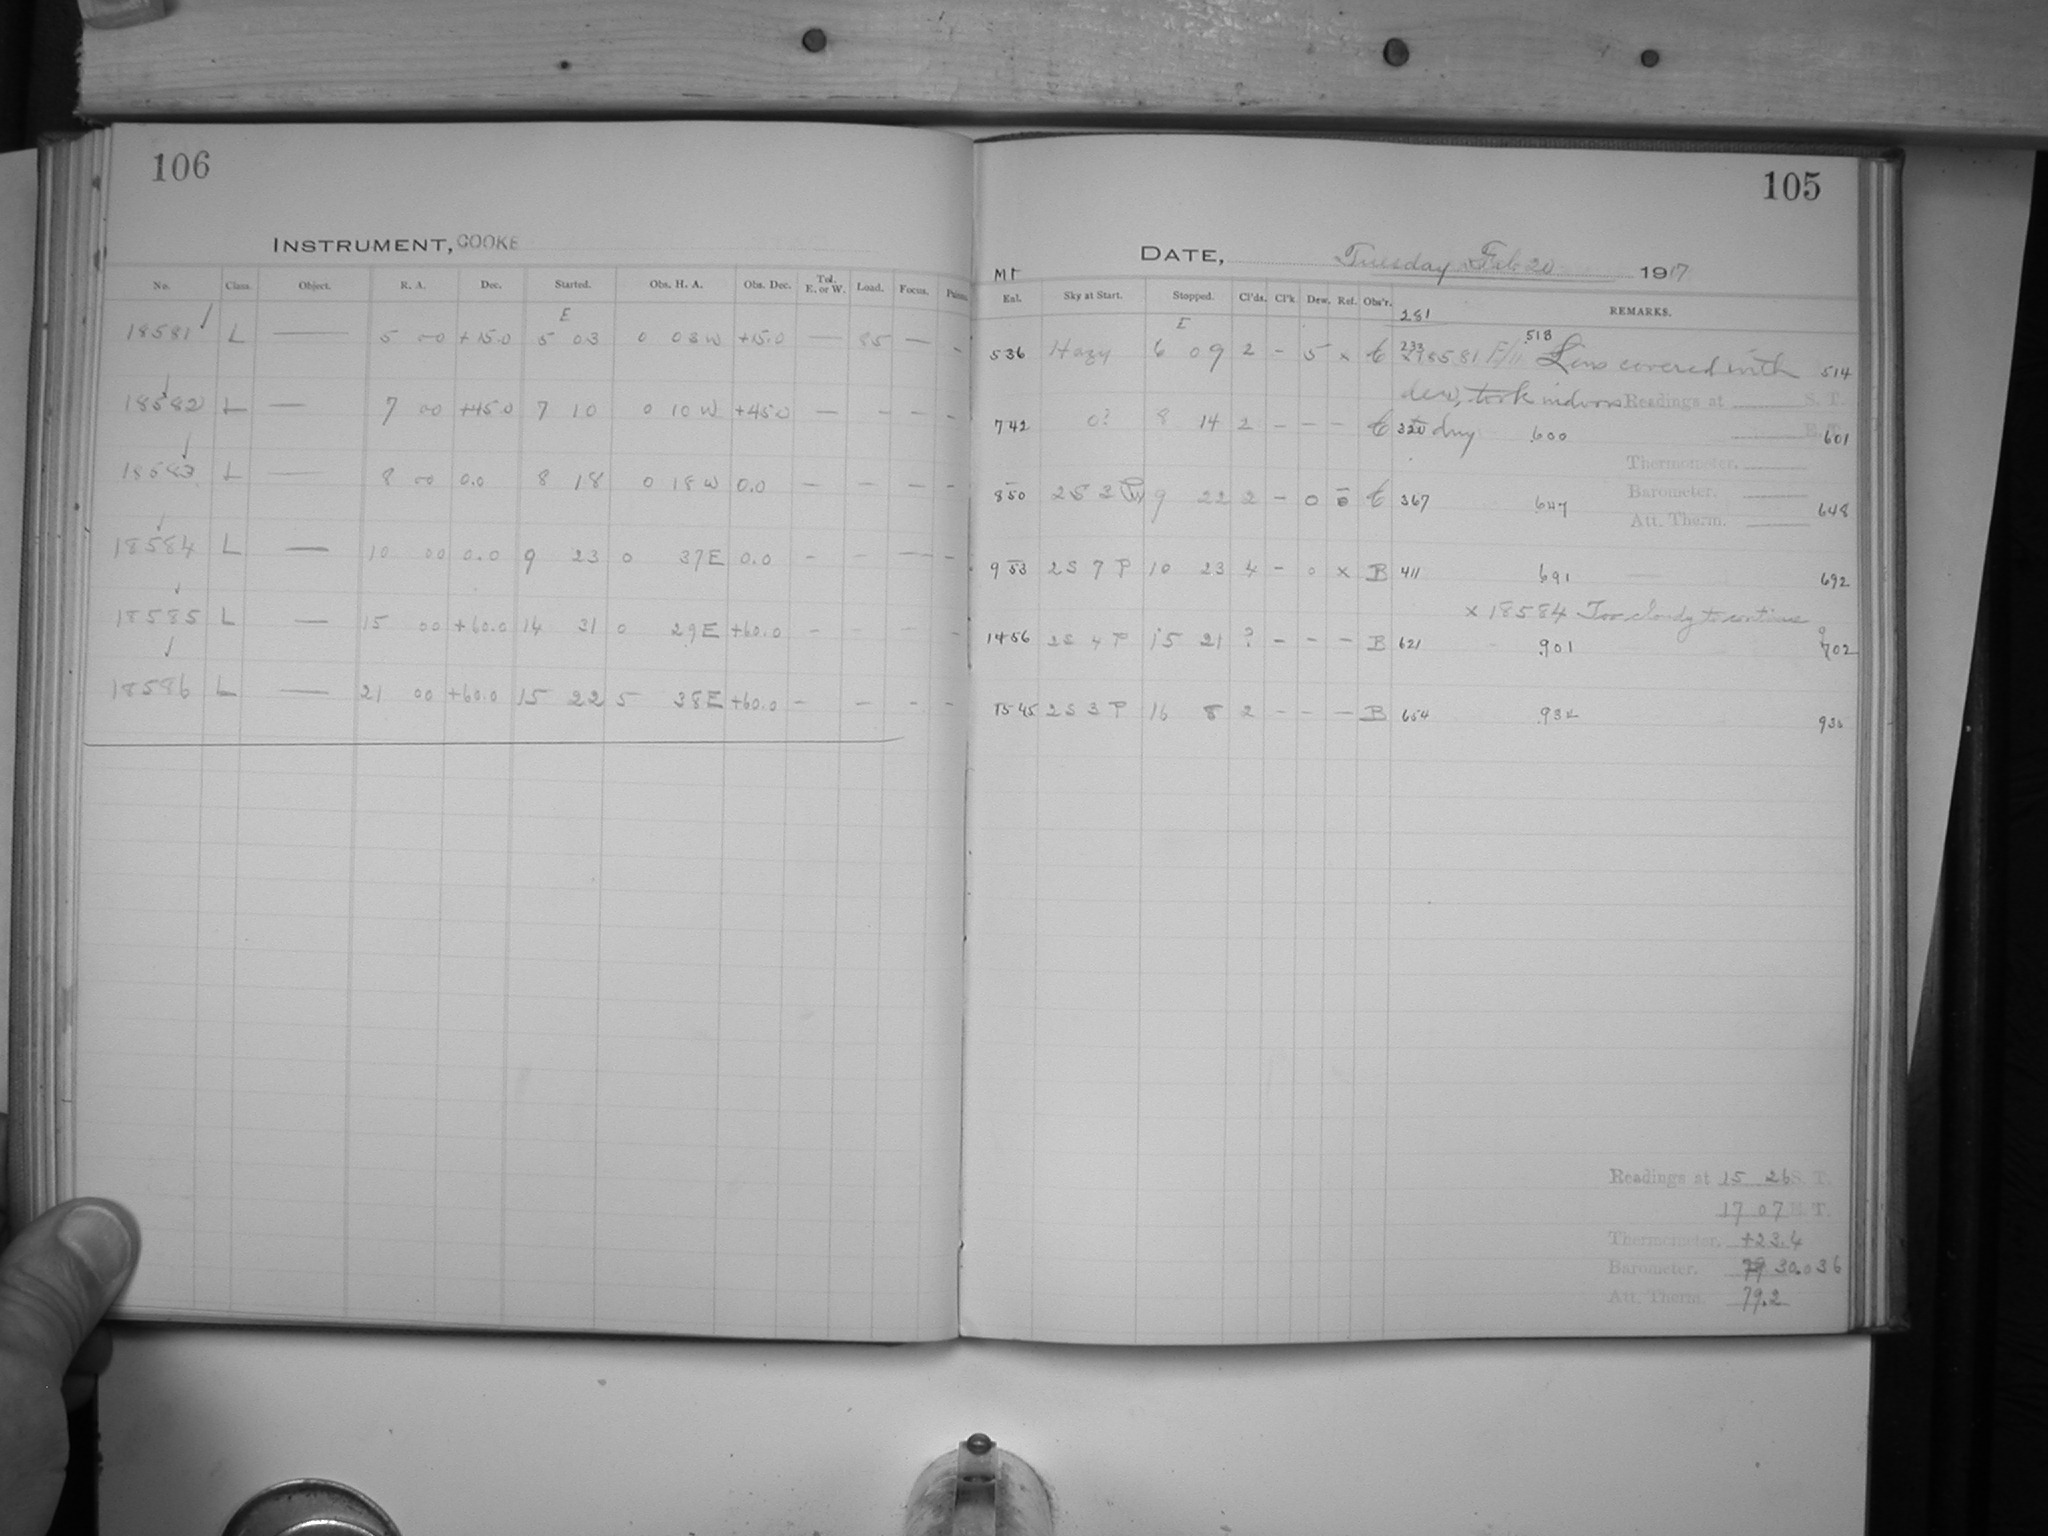 106
INSTRUMENT, COOKE
No. Class. Object. R. A. Dec. Started. Obs. H. A. Obs. Dec. Tel. E. or W. Load. Focus.
E
18581 L — 5 00 +15.0 5 03 0 03 W +15.0 — 85 — -
18582 L — 7 00 +45.0 7 10 0 10 W +45.0 — - - -
18583 L — 8 00 0.0 8 18 0 18 W 0.0 — - - -
18584 L — 10 00 0.0 9 23 0 37 E 0.0 - - — -
18585 L — 15 00 +60.0 14 31 0 29 E +60.0 - - - -
18586 L — 21 00 +60.0 15 22 5 38 E +60.0 - - - -
105
DATE, Tuesday Feb 20 1917
Exl. Sky at Start. Stopped. Cl'ds. Cl'k. Dew. Ref. Obs'r. REMARKS.
281
E
518
536 Hazy 6 09 2 - 5 x C 18581 F/11 Lens covered with 514
dew, took indoors
Readings at S. T.
742 0? 8 14 2 - - - C 320 to dry 600 E. T. 601
Thermometer.
Barometer.
850 2 S 3 9 22 2 - 0 C 367 647 648
Att. Therm.
953 2 S 7 P 10 23 4 - 0 x B 411 691 692
x 18584 Too cloudy to continue
1456 2 S 4 P 15 21 ? - - - B 621 901 902
1545 2 S 3 P 16 8 2 - - - B 654 934
Readings at 15 26 S. T.
17 07 E. T.
Thermometer. +23.4
Barometer. 30.036
Att. Therm. 79.2